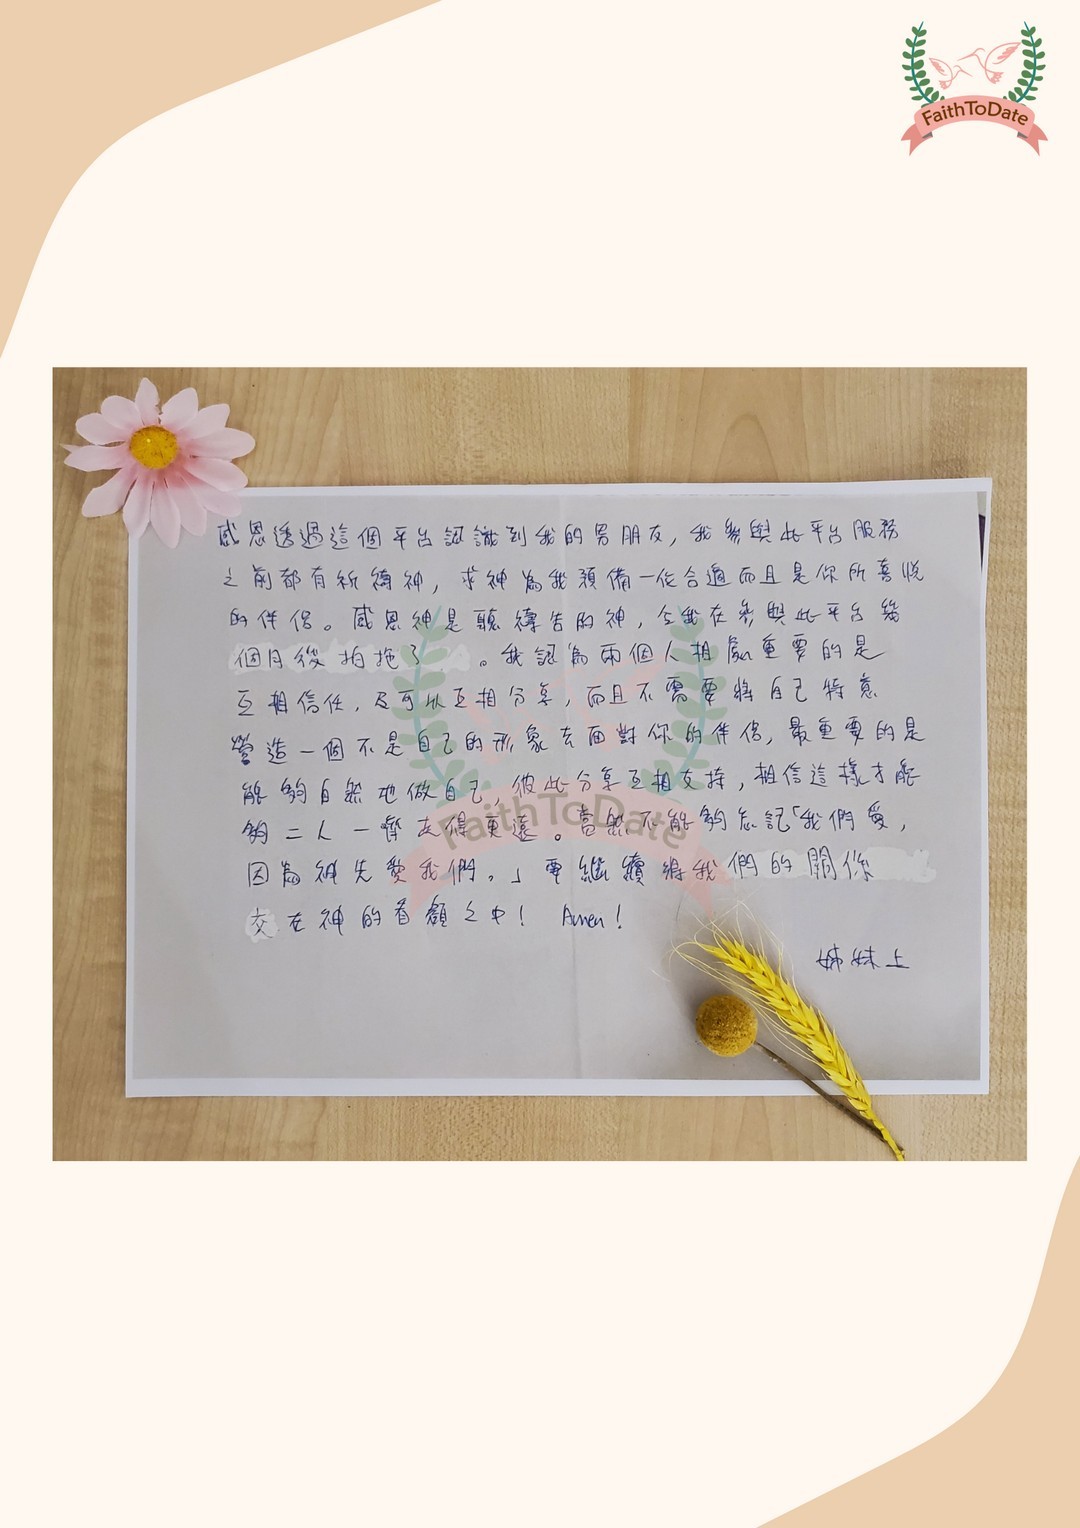 FaithToDate
感恩透過這個平台認識到我的男朋友，我參與此平台服務
之前都有祈禱神，求神為我預備一位合適而且是你所喜悅
的伴侶。感恩神是聽禱告的神，令我在參與此平台幾
個月後拍拖了。我認為兩個人相處重要的是
互相信任，及可以互相分享，而且不需要將自己特意
營造一個不是自己的形象去面對你的伴侶，最重要的是
能夠自然地做自己，彼此分享互相支持，相信這樣才能
夠二人一齊走得更遠。當然不能夠忘記「我們愛，
因為神先愛我們。」要繼續將我們的關係
交在神的看顧之中！ Amen！
姊妹上
FaithToDate